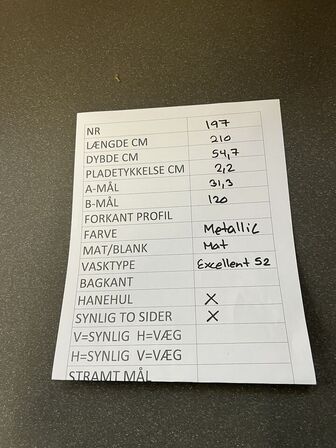 NR 197
LÆNGDE CM 210
DYBDE CM 54,7
PLADETYKKELSE CM 2,2
A-MÅL 31,3
B-MÅL 120
FORKANT PROFIL
FARVE Metallic
MAT/BLANK Mat
VASKTYPE Excellent 52
BAGKANT
HANEHUL X
SYNLIG TO SIDER X
V=SYNLIG H=VÆG
H=SYNLIG V=VÆG
STRAMT MÅL